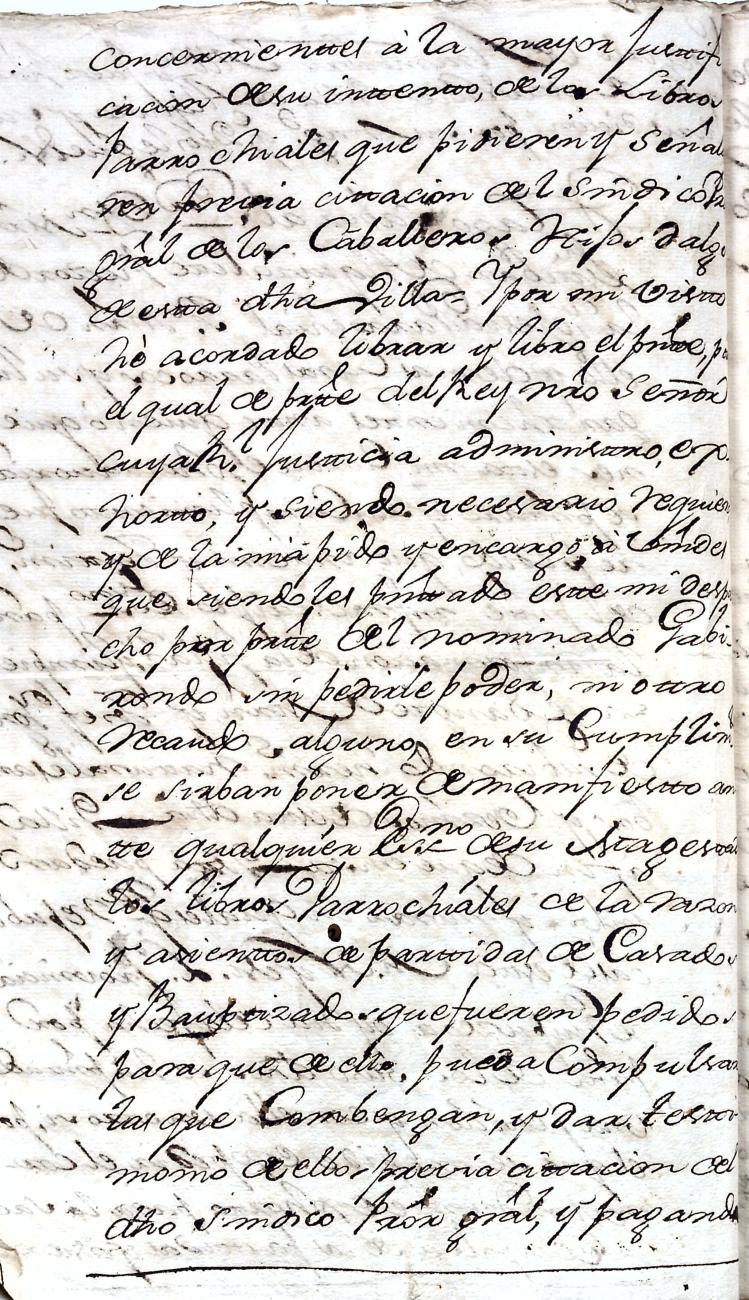 concernientes à la mayor Justtifi
cacion de su inttento, de los Libros
Parrochiales que pidieren y señala
ren previa cittacion del Sindico Pr
grãl de los Caballeros Hijos dalgo
de esta dha Villa= Y por mi Visto
hè acordado librar y libro el pnte, por
el qual de prte del Rey nrõ Señor
cuya Rl. Justticia administro, ex
horto, y siendo necesario requier
y de la mia pido y encargo, à Vmdes
que siendoles pnttado este mi despa
cho por prte del nominado Gabi
rondo sin pedirle poder, ni ottro
recaudo alguno, en su Cumplimto
se sirban poner de manifiestto an
tte qualquier Essno de su Magestad
los libros Parrochiales de la razon
y asienttos de parttidas de Casados
y Bauptizados que fueren pedidos
para que de ellos pueda Compulsar
las que Combengan, y dar testti
monio de ellos previa cittacion del
dho Sindico Prõr grãl, y pagando